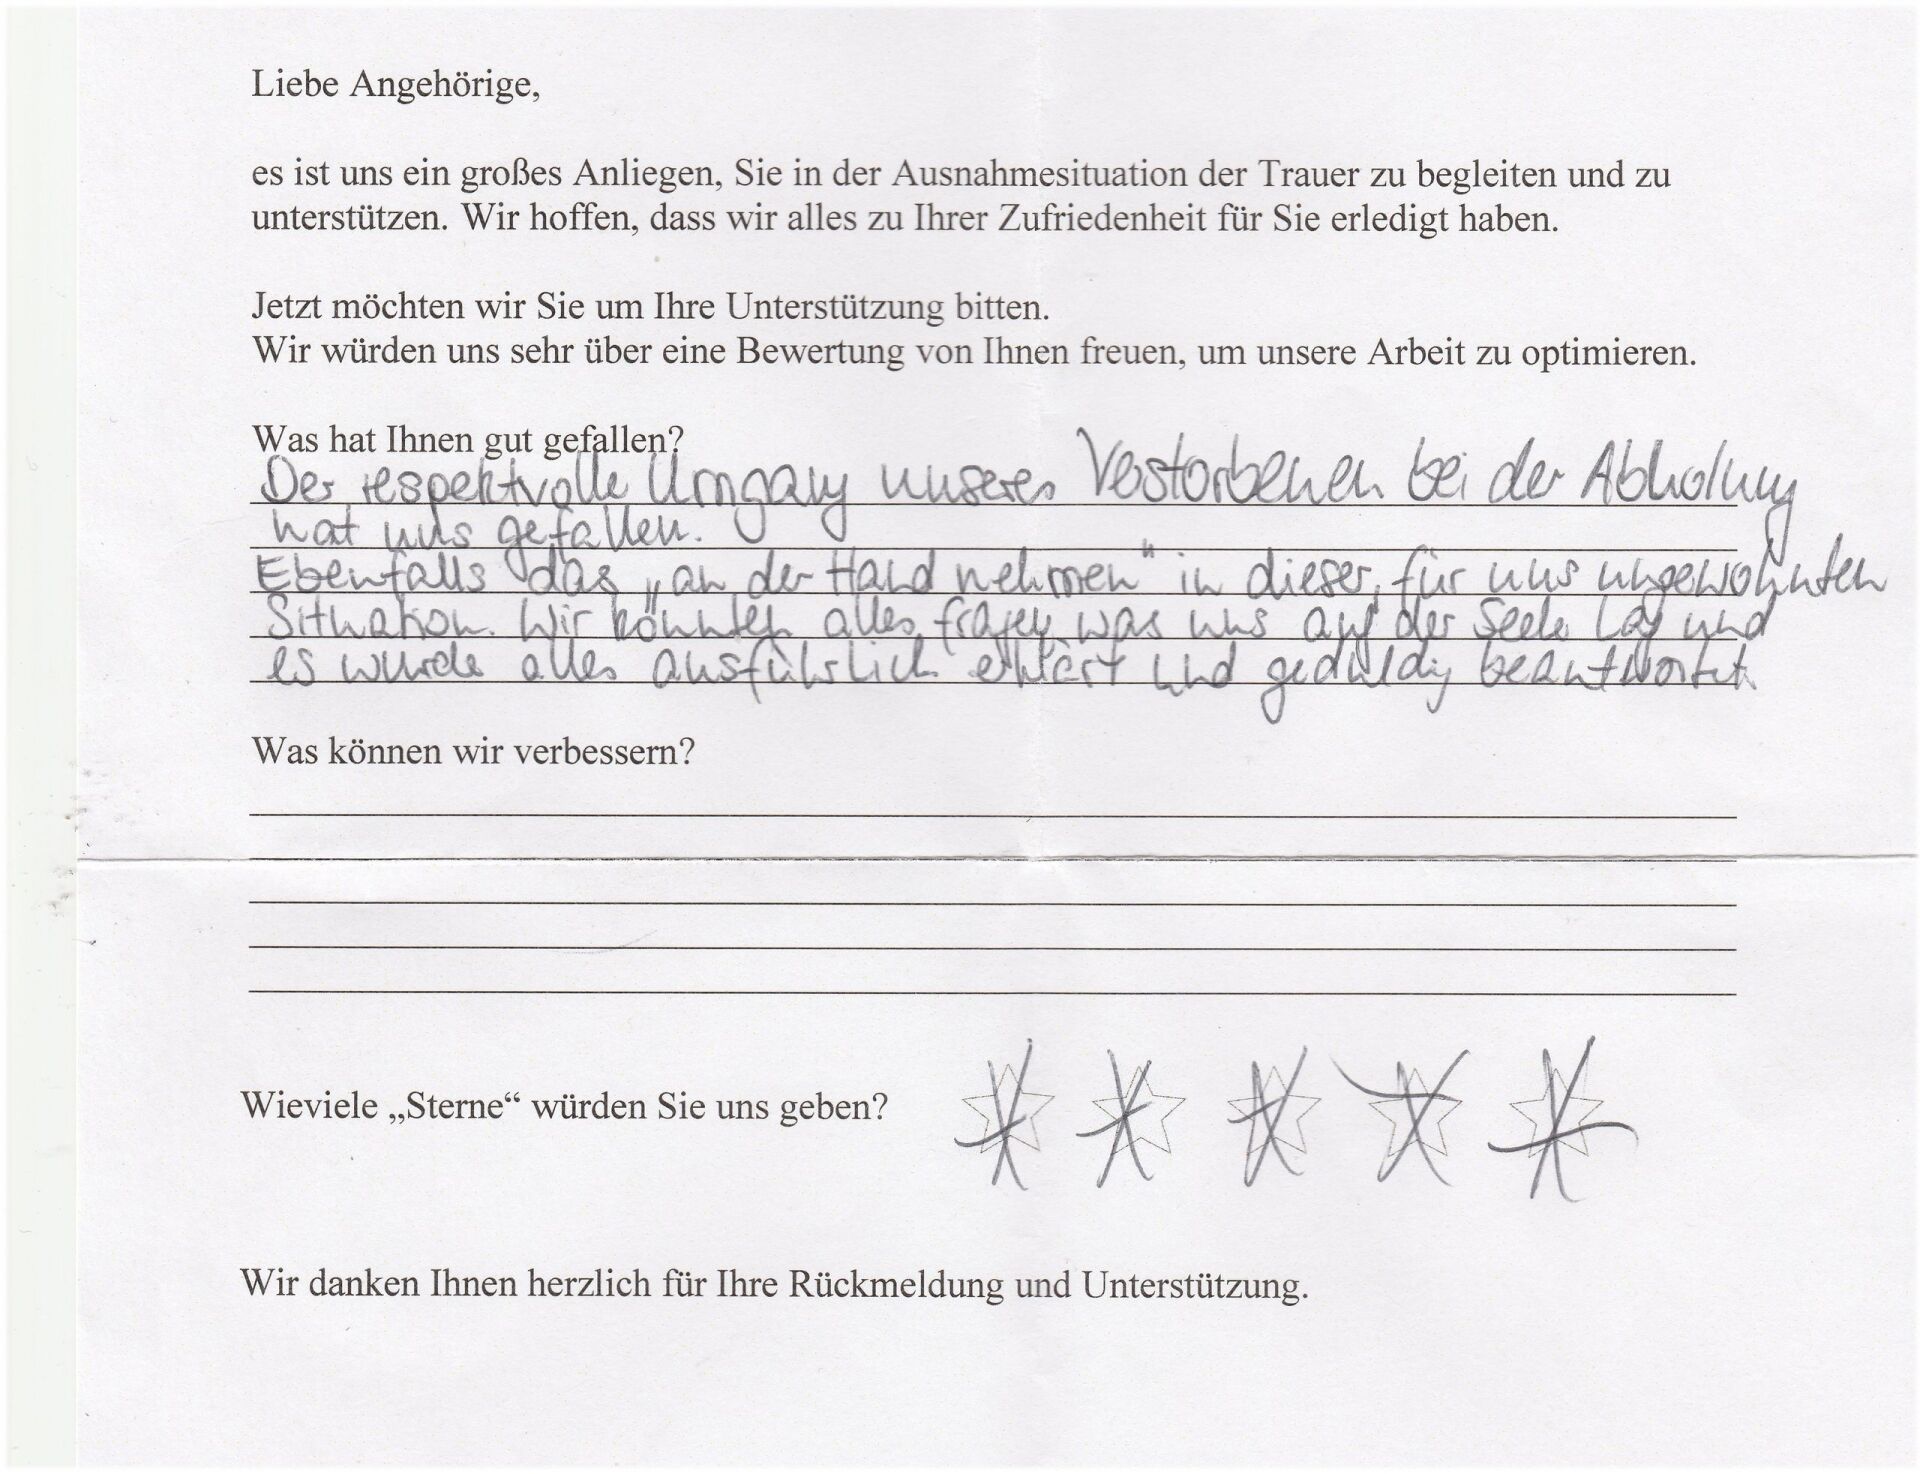 Liebe Angehörige,
es ist uns ein großes Anliegen, Sie in der Ausnahmesituation der Trauer zu begleiten und zu
unterstützen. Wir hoffen, dass wir alles zu Ihrer Zufriedenheit für Sie erledigt haben.
Jetzt möchten wir Sie um Ihre Unterstützung bitten.
Wir würden uns sehr über eine Bewertung von Ihnen freuen, um unsere Arbeit zu optimieren.
Was hat Ihnen gut gefallen?
Der respektvolle Umgang unseres Verstorbenen bei der Abholung
hat uns gefallen.
Ebenfalls das „an der Hand nehmen“ in dieser, für uns ungewohnten
Situation. Wir konnten alles fragen was uns auf der Seele lag und
es wurde alles ausführlich erklärt und geduldig beantwortet.
Was können wir verbessern?
Wieviele „Sterne“ würden Sie uns geben?
Wir danken Ihnen herzlich für Ihre Rückmeldung und Unterstützung.